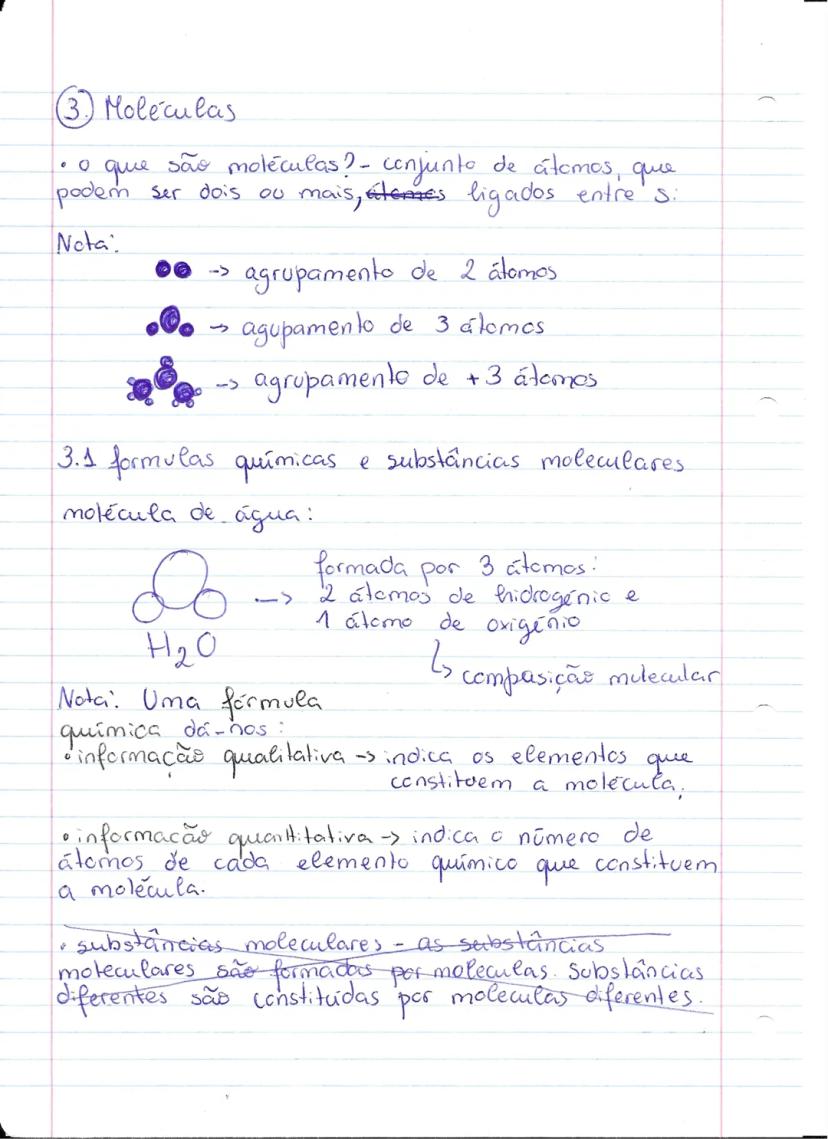 3. Moléculas
• o que são moléculas? - conjunto de átomos, que
podem ser dois ou mais, átomos ligados entre si
Nota:
-> agrupamento de 2 átomos
-> agupamento de 3 átomos
-> agrupamento de + 3 átomos
3.1 formulas químicas e substâncias moleculares
molécula de água:
formada por 3 átomos:
-> 2 átomos de hidrogénio e
1 átomo de oxigénio
H2O
↳ composição mulecular
Nota: Uma fórmula
química dá-nos:
• informação qualitativa -> indica os elementos que
constituem a molécula.
• informação quantitativa -> indica o número de
átomos de cada elemento químico que constituem
a molécula.
• substâncias moleculares - as substâncias
moleculares são formadas por moleculas. Substâncias
diferentes são constituídas por moleculas diferentes.